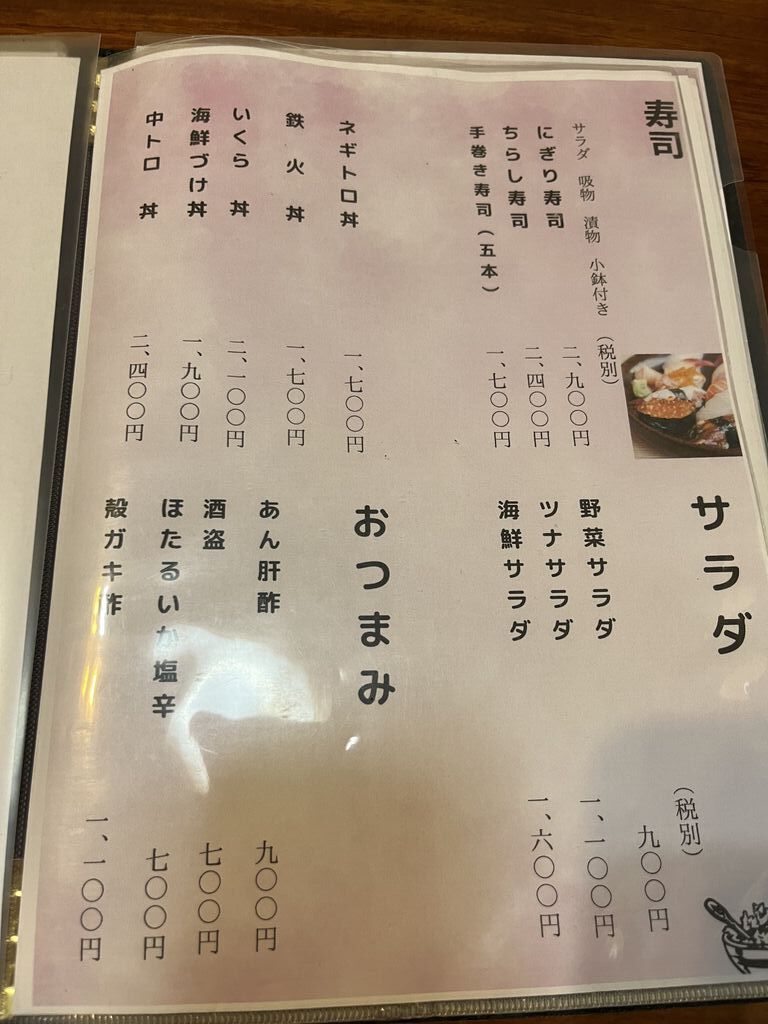 寿司
サラダ 吸物 漬物 小鉢付き (税別)
にぎり寿司 二、九〇〇円
ちらし寿司 二、四〇〇円
手巻き寿司(五本) 一、七〇〇円
ネギトロ丼 一、七〇〇円
鉄火丼 一、七〇〇円
いくら丼 二、一〇〇円
海鮮づけ丼 一、九〇〇円
中トロ丼 二、四〇〇円
サラダ
(税別)
野菜サラダ 九〇〇円
ツナサラダ 一、一〇〇円
海鮮サラダ 一、六〇〇円
おつまみ
あん肝酢 九〇〇円
酒盗 七〇〇円
ほたるいか塩辛 七〇〇円
殻ガキ酢 一、一〇〇円